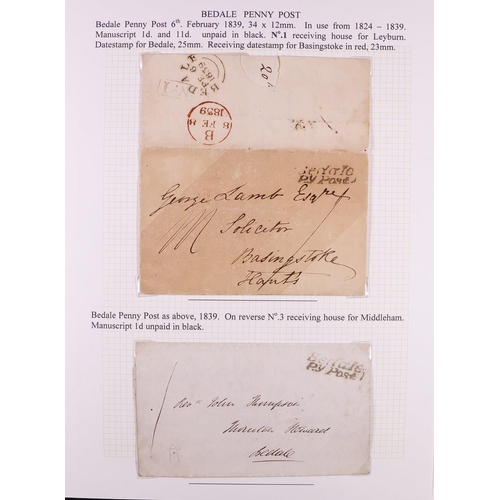 BEDALE PENNY POST
Bedale Penny Post 6th. February 1839, 34 x 12mm. In use from 1824 – 1839.
Manuscript 1d. and 11d. unpaid in black. No.1 receiving house for Leyburn.
Datestamp for Bedale, 25mm. Receiving datestamp for Basingstoke in red, 23mm.
No.1
1839
B
8 FE 8
1839
Py Post
George Lamb Esqre
Solicitor
Basingstoke
Hants
Bedale Penny Post as above, 1839. On reverse No.3 receiving house for Middleham.
Manuscript 1d unpaid in black.
Bedale
Py Post
Revd John Thompson
Bedale